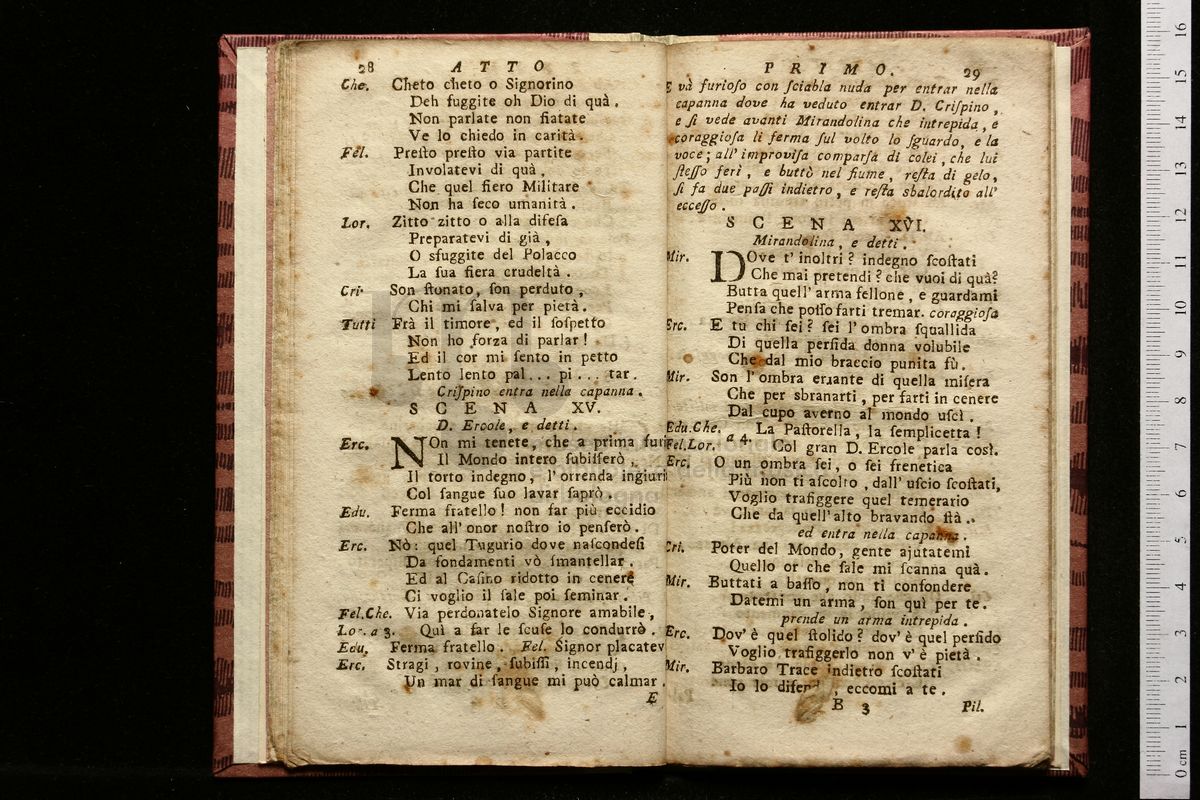 28 ATTO
Che. Cheto cheto o Signorino
Deh fuggite oh Dio di quà.
Non parlate non fiatate
Ve lo chiedo in carità.
Fel. Preſto preſto via partite
Involatevi di quà,
Che quel fiero Militare
Non ha ſeco umanità.
Lor. Zitto zitto o alla difeſa
Preparatevi di già,
O sfuggite del Polacco
La ſua fiera crudeltà.
Cri. Son ſtonato, ſon perduto,
Chi mi ſalva per pietà.
Tutti Frà il timore, ed il ſoſpetto
Non ho forza di parlar!
Ed il cor mi ſento in petto
Lento lento pal... pi... tar.
Criſpino entra nella capanna.
SCENA XV.
D. Ercole, e detti.
Erc. NOn mi tenete, che a prima furi
Il Mondo intero ſubiſſerò,
Il torto indegno, l'orrenda ingiuri
Col ſangue ſuo lavar ſaprò.
Edu. Ferma fratello! non far più eccidio
Che all'onor noſtro io penſerò.
Erc. Nò: quel Tugurio dove naſcondeſi
Da fondamenti vò ſmantellar.
Ed al Caſino ridotto in cenere
Ci voglio il ſale poi ſeminar.
Fel.Che. Via perdonatelo Signore amabile,
Lor. a 3. Quì a far le ſcuſe lo condurrò.
Edu. Ferma fratello. Fel. Signor placatev
Erc. Stragi, rovine, ſubiſſi, incendj,
Un mar di ſangue mi può calmar.
E
PRIMO. 29
E và furioſo con ſciabla nuda per entrar nella
capanna dove ha veduto entrar D. Criſpino,
e ſi vede avanti Mirandolina che intrepida, e
coraggioſa li ferma ſul volto lo ſguardo, e la
voce; all'improviſa comparſa di colei, che lui
ſteſſo ferì, e buttò nel fiume, reſta di gelo,
ſi fa due paſſi indietro, e reſta sbalordito all'
ecceſſo.
SCENA XVI.
Mirandolina, e detti.
Mir. DOve t'inoltri? indegno ſcoſtati
Che mai pretendi? che vuoi di quà?
Butta quell'arma fellone, e guardami
Penſa che poſſo farti tremar. coraggioſa
Erc. E tu chi ſei? ſei l'ombra ſquallida
Di quella perfida donna volubile
Che dal mio braccio punita fù.
Mir. Son l'ombra errante di quella miſera
Che per sbranarti, per farti in cenere
Dal cupo averno al mondo uſcì.
Edu.Che. La Paſtorella, la ſemplicetta!
Fel.Lor. a 4. Col gran D. Ercole parla così.
Erc. O un ombra ſei, o ſei frenetica
Più non ti aſcolto, dall'uſcio ſcoſtati,
Voglio trafiggere quel temerario
Che da quell'alto bravando ſtà.
ed entra nella capanna.
Cri. Poter del Mondo, gente ajutatemi
Quello or che ſale mi ſcanna quà.
Mir. Buttati a baſſo, non ti confondere
Datemi un arma, ſon quì per te.
prende un arma intrepida.
Erc. Dov'è quel ſtolido? dov'è quel perfido
Voglio trafiggerlo non v'è pietà.
Mir. Barbaro Trace indietro ſcoſtati
Io lo , eccomi a te.
B 3 Pil.